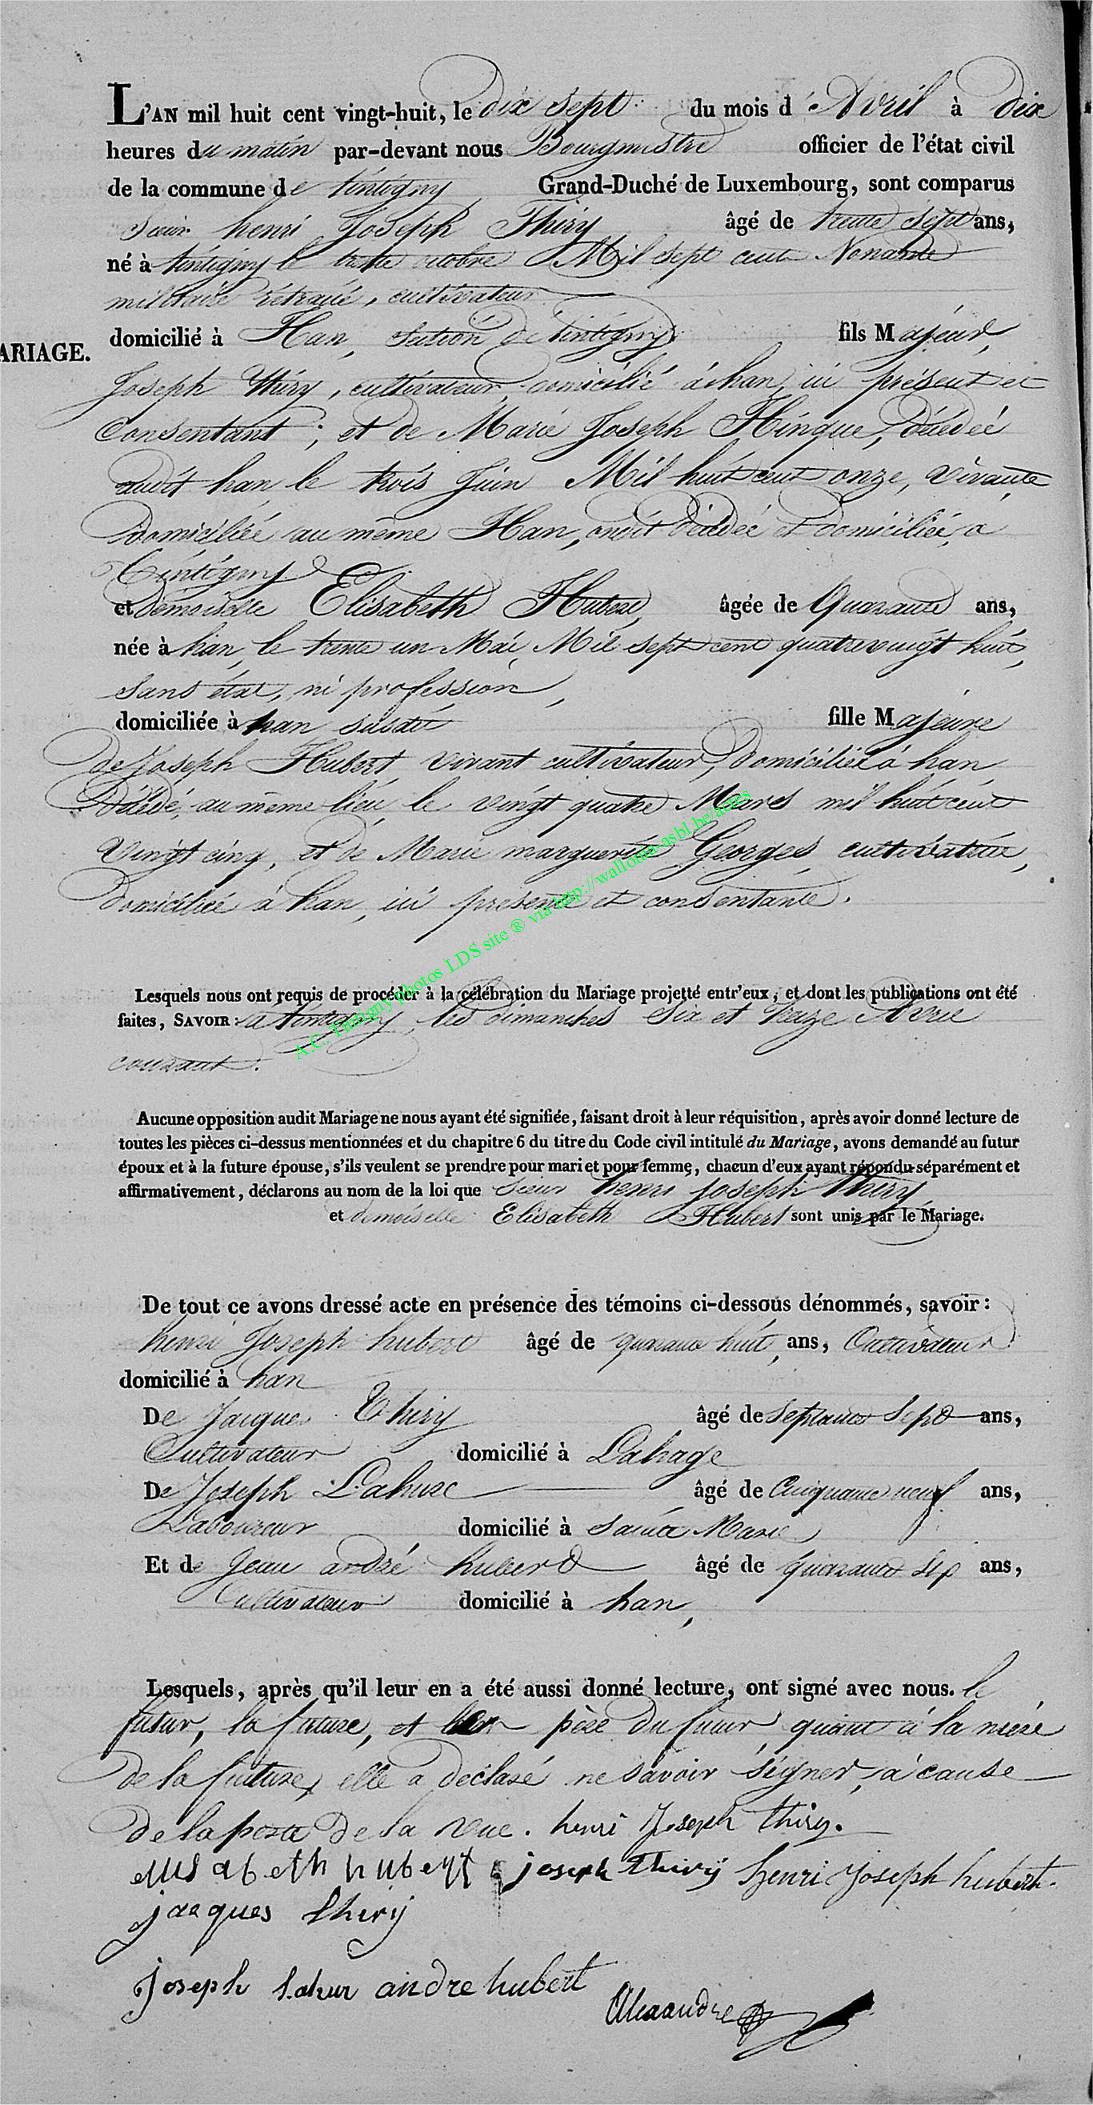 L'AN mil huit cent vingt-huit, le dix sept du mois d'Avril à dix
heures du matin par-devant nous Bourgmestre officier de l'état civil
de la commune de tintigny Grand-Duché de Luxembourg, sont comparus
Sieur henri Joseph Thiry âgé de trente sept ans,
né à tintigny le trente octobre Mil sept cent Nonante
militaire rétraité, cultivateur
domicilié à Han, section de tintigny fils Majeur,
ARIAGE.
Joseph Thiry, cultivateur, domicilié à han, ici présent et
Consentant; et de Marie Joseph Hinque, décédée
audit han le trois Juin Mil huit cent onze, vivante
domiciliée au même Han, décédée et domiciliée, a
tintigny
et demoiselle Elisabeth Hubert, âgée de Quarante ans,
née à han, le trente un Mai, Mil sept cent quatrevingt huit,
Sans état, ni profession,
domiciliée à han susdit fille Majeure
de Joseph Hubert, vivant cultivateur, domicilié à han
Décédé, au même lieu, le vingt quatre Mars mil huit cent
Vingt cinq, et de Marie marguerite Georges, cultivatrice,
domiciliée à han, ici présente et consentante.
Lesquels nous ont requis de procéder à la célébration du Mariage projetté entr'eux, et dont les publications ont été
faites, SAVOIR: a tintigny, les dimanches Six et treize Avril
courant.
Aucune opposition audit Mariage ne nous ayant été signifiée, faisant droit à leur réquisition, après avoir donné lecture de
toutes les pièces ci-dessus mentionnées et du chapitre 6 du titre du Code civil intitulé du Mariage, avons demandé au futur
époux et à la future épouse, s'ils veulent se prendre pour mari et pour femme, chacun d'eux ayant répondu séparément et
affirmativement, déclarons au nom de la loi que Sieur henri joseph thiry
et demoiselle Elisabeth Hubert sont unis par le Mariage.
De tout ce avons dressé acte en présence des témoins ci-dessous dénommés, savoir:
henri Joseph hubert âgé de quarante huit ans, Cultivateur
domicilié à han
De Jacques Thiry âgé de Septante Sept ans,
Cultivateur domicilié à Lahage
De Joseph Lahure âgé de Cinquante neuf ans,
Laboureur domicilié à Sainte Marie
Et de Jean andré hubert âgé de quarante six ans,
Cultivateur domicilié à han,
Lesquels, après qu'il leur en a été aussi donné lecture, ont signé avec nous. le
futur, la future, et père du futur, quant à la mère
de la future, elle a déclaré ne savoir signer, à cause
de la perte de la vue. henri Joseph thiry.
elisabeth hubert joseph thirÿ henri Joseph hubert.
jacques thirÿ
joseph lahur andre hubert
Alexandre
A.C. Tintigny photos LDS site ® via http://wallonia-asbl.be/actes